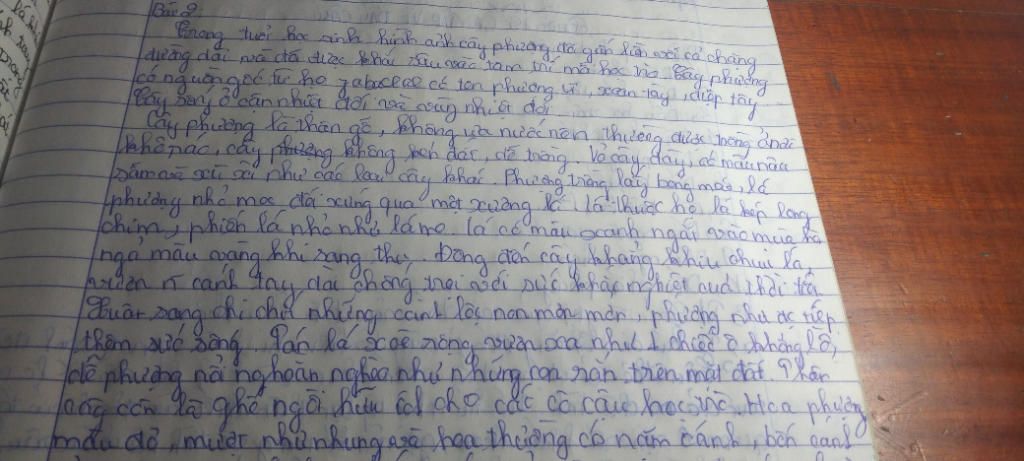 Bài 2
Trong tuổi học sinh hình ảnh cây phượng đã gắn liền với cả chặng
đường dài và đã được khắc sâu vào tâm trí mỗi học trò. Cây phượng
có nguồn gốc từ họ Fabaceae có tên phượng vĩ, xoan tây, điệp tây
Cây sống ở cận nhiệt đới và vùng nhiệt đới
Cây phượng là thân gỗ, không ưa nước nên thường được trồng ở nơi
khô ráo, cây không kén đất, dễ trồng. Vỏ cây dày, có màu nâu
sẫm và xù xì như các loại cây khác. Phượng trồng lấy bóng mát, lá
phượng nhỏ mọc đối xứng qua một xương lá lá thuộc họ lá kép lông
chim, phiến lá nhỏ như lá me lá có màu xanh ngắt vào mùa hạ
ngả màu vàng khi sang thu. Đông đến cây khẳng khiu chui lá
vươn cánh tay dài chống trọi với sức khắc nghiệt của thời tiết
Xuân sang chi chít những cành lộc non mơn mởn, phượng như đc tiếp
thêm sức sống. Tán lá xoè rộng vươn xa như 1 chiếc ô khổng lồ,
rễ phượng nổi ngoằn nghèo như những con rắn trên mặt đất. Thân
cây còn là ghế ngồi hữu ích cho các cô cậu học trò. Hoa phượng
màu đỏ, mượt như nhung và hoa thường có năm cánh, bốn cánh